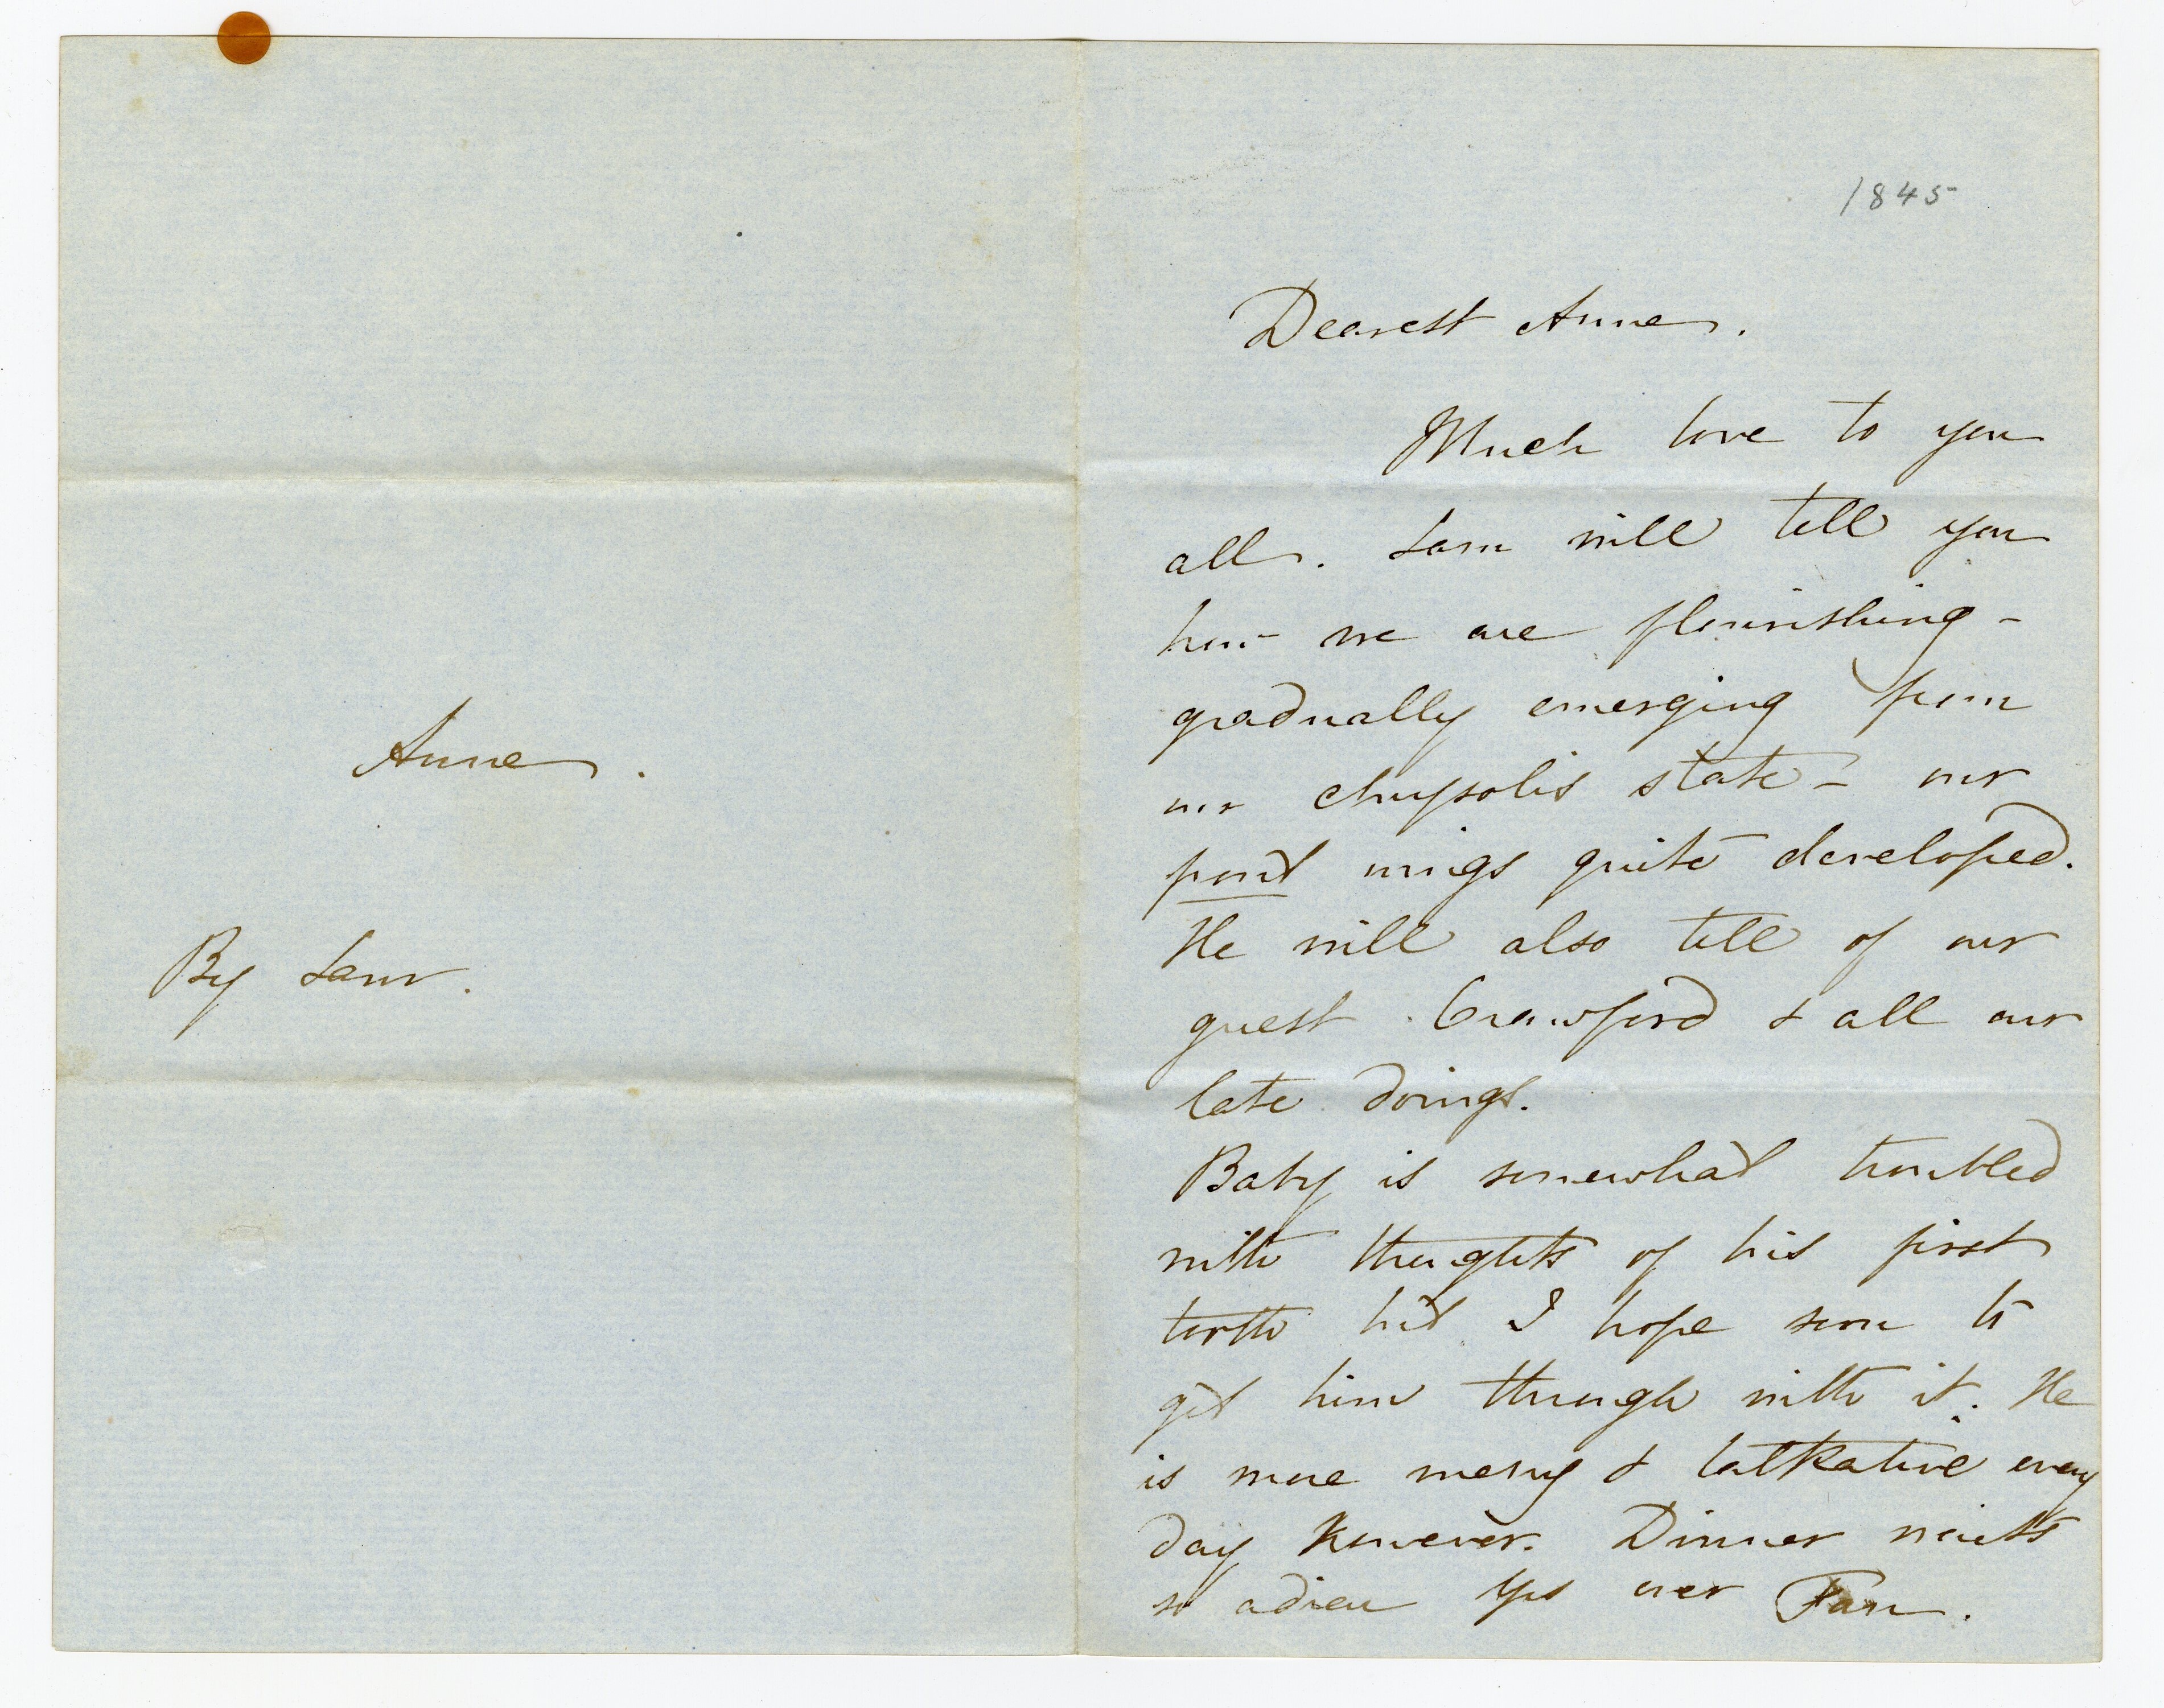 Anne.
By Sam.
1845
Dearest Anne.
Much love to you
all. Sam will tell you
how we are flourishing -
gradually emerging from
our chrysolis state - our
front wings quite developed.
He will also tell of our
guest Crawford & all our
late doings.
Baby is somewhat troubled
with thoughts of his first
tooth but I hope soon to
get him through with it. He
is more merry & talkative every
day however. Dinner waits
so adieu Yrs ever Fan.